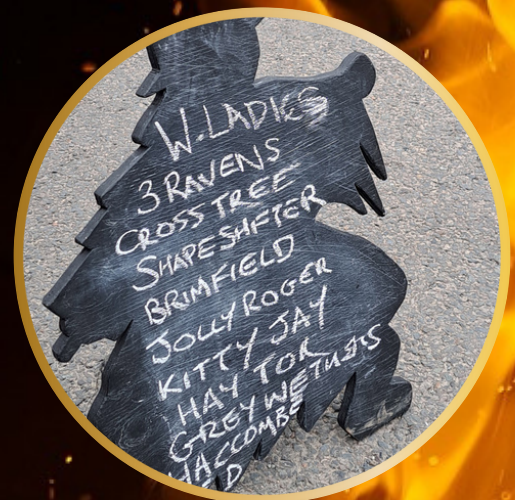 W. LADIES
3 RAVENS
CROSS TREE
SHAPESHIFTER
BRIMFIELD
JOLLY ROGER
KITTY JAY
HAY TOR
GREY WETHERS
HACCOMBE